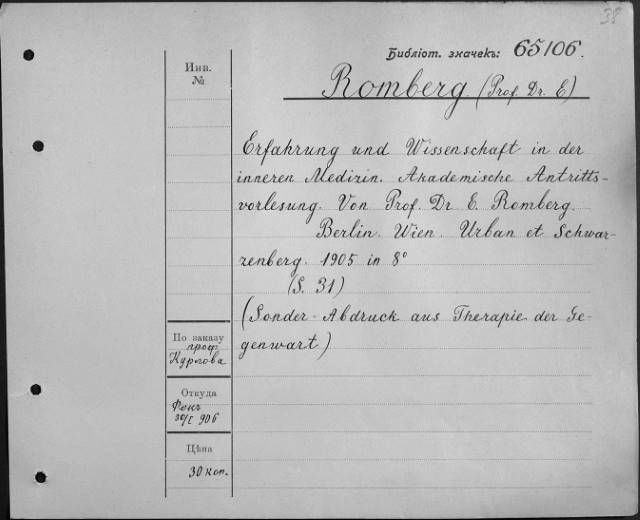 38
Библіот. значекъ: 65106.
Romberg (Prof. Dr. E)
Инв.
№
Erfahrung und Wissenschaft in der
inneren Medizin. Akademische Antritts-
vorlesung. Von Prof. Dr E. Romberg.
Berlin. Wien. Urban et Schwar-
zenberg. 1905 in 8°
(S. 31)
(Sonder-Abdruck aus Therapie der Ge-
genwart)
По заказу
проф.
Курлова
Откуда
30/I 906
Цѣна
30 коп.